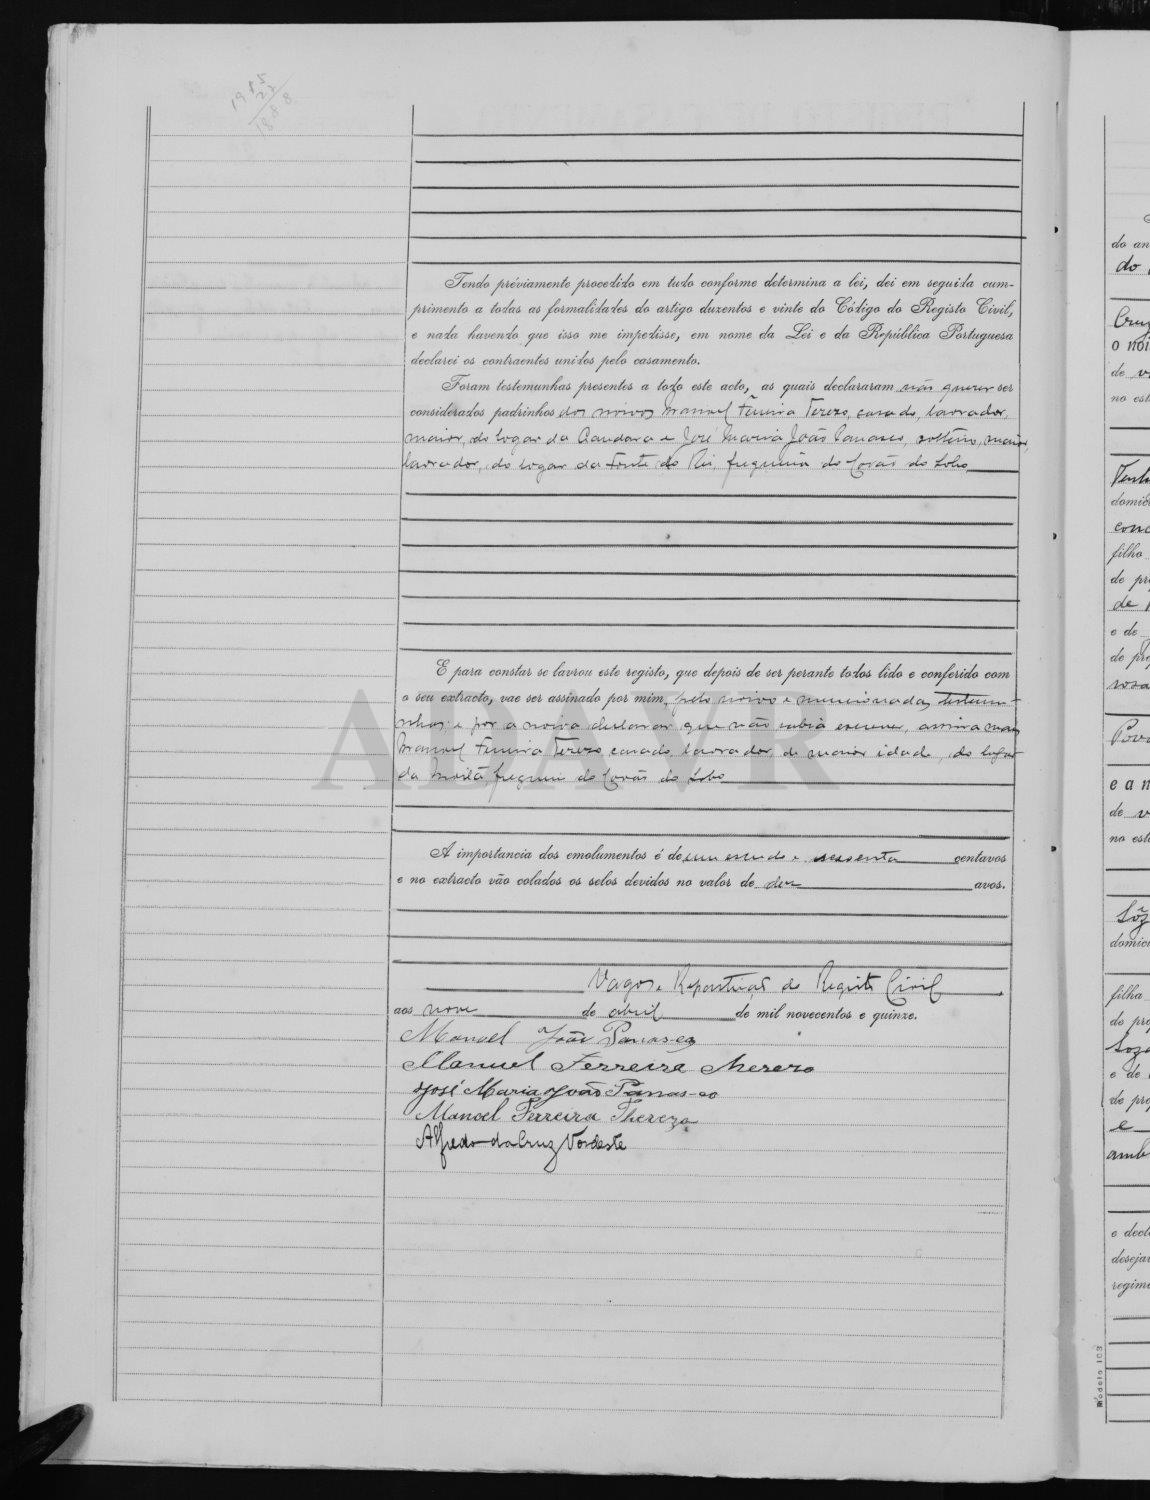 1915
27
1888
Tendo préviamente procedido em tudo conforme determina a lei, dei em seguida cum-
primento a todas as formalidades do artigo duzentos e vinte do Código do Registo Civil,
e nada havendo que isso me impedisse, em nome da Lei e da República Portuguesa
declarei os contraentes unidos pelo casamento.
Foram testemunhas presentes a todo este acto, as quais declararam não querer ser
considerados padrinhos dos noivos Manuel Ferreira Terezo, casado, lavrador,
maior, do logar da Gandara e José Maria João Panasco, solteiro, maior,
lavrador, do logar da Fonte do Rei, freguesia de Covão do Lobo
E para constar se lavrou este registo, que depois de ser perante todos lido e conferido com
o seu extracto, vae ser assinado por mim, pelo noivo e mencionadas testemu-
nhas e por a noiva declarar que não sabia escrever, assina mais
Manuel Ferreira Terezo casado, lavrador, de maior idade, do logar
da freguesia de Covão do Lobo
A importancia dos emolumentos é de um escudo e sessenta centavos
e no extracto vão colados os selos devidos no valor de dez avos.
Vagos, Repartição do Registo Civil
aos nove de abril de mil novecentos e quinze.
Manoel João Panasco
Manuel Ferreira
José Maria João Panas-co
Manoel Ferreira Thereza
Alfredo da Cruz Nordeste
ADAVR
do an
do
Cruz
o noi
de v
no est
domic
conc
filho
de pro
de
e de
de pro
rosa
Pov
e a n
de v
no est
domici
filha
de pro
Soza
e de
de pro
e
amb
e decl
desejar
regime
Modelo 103